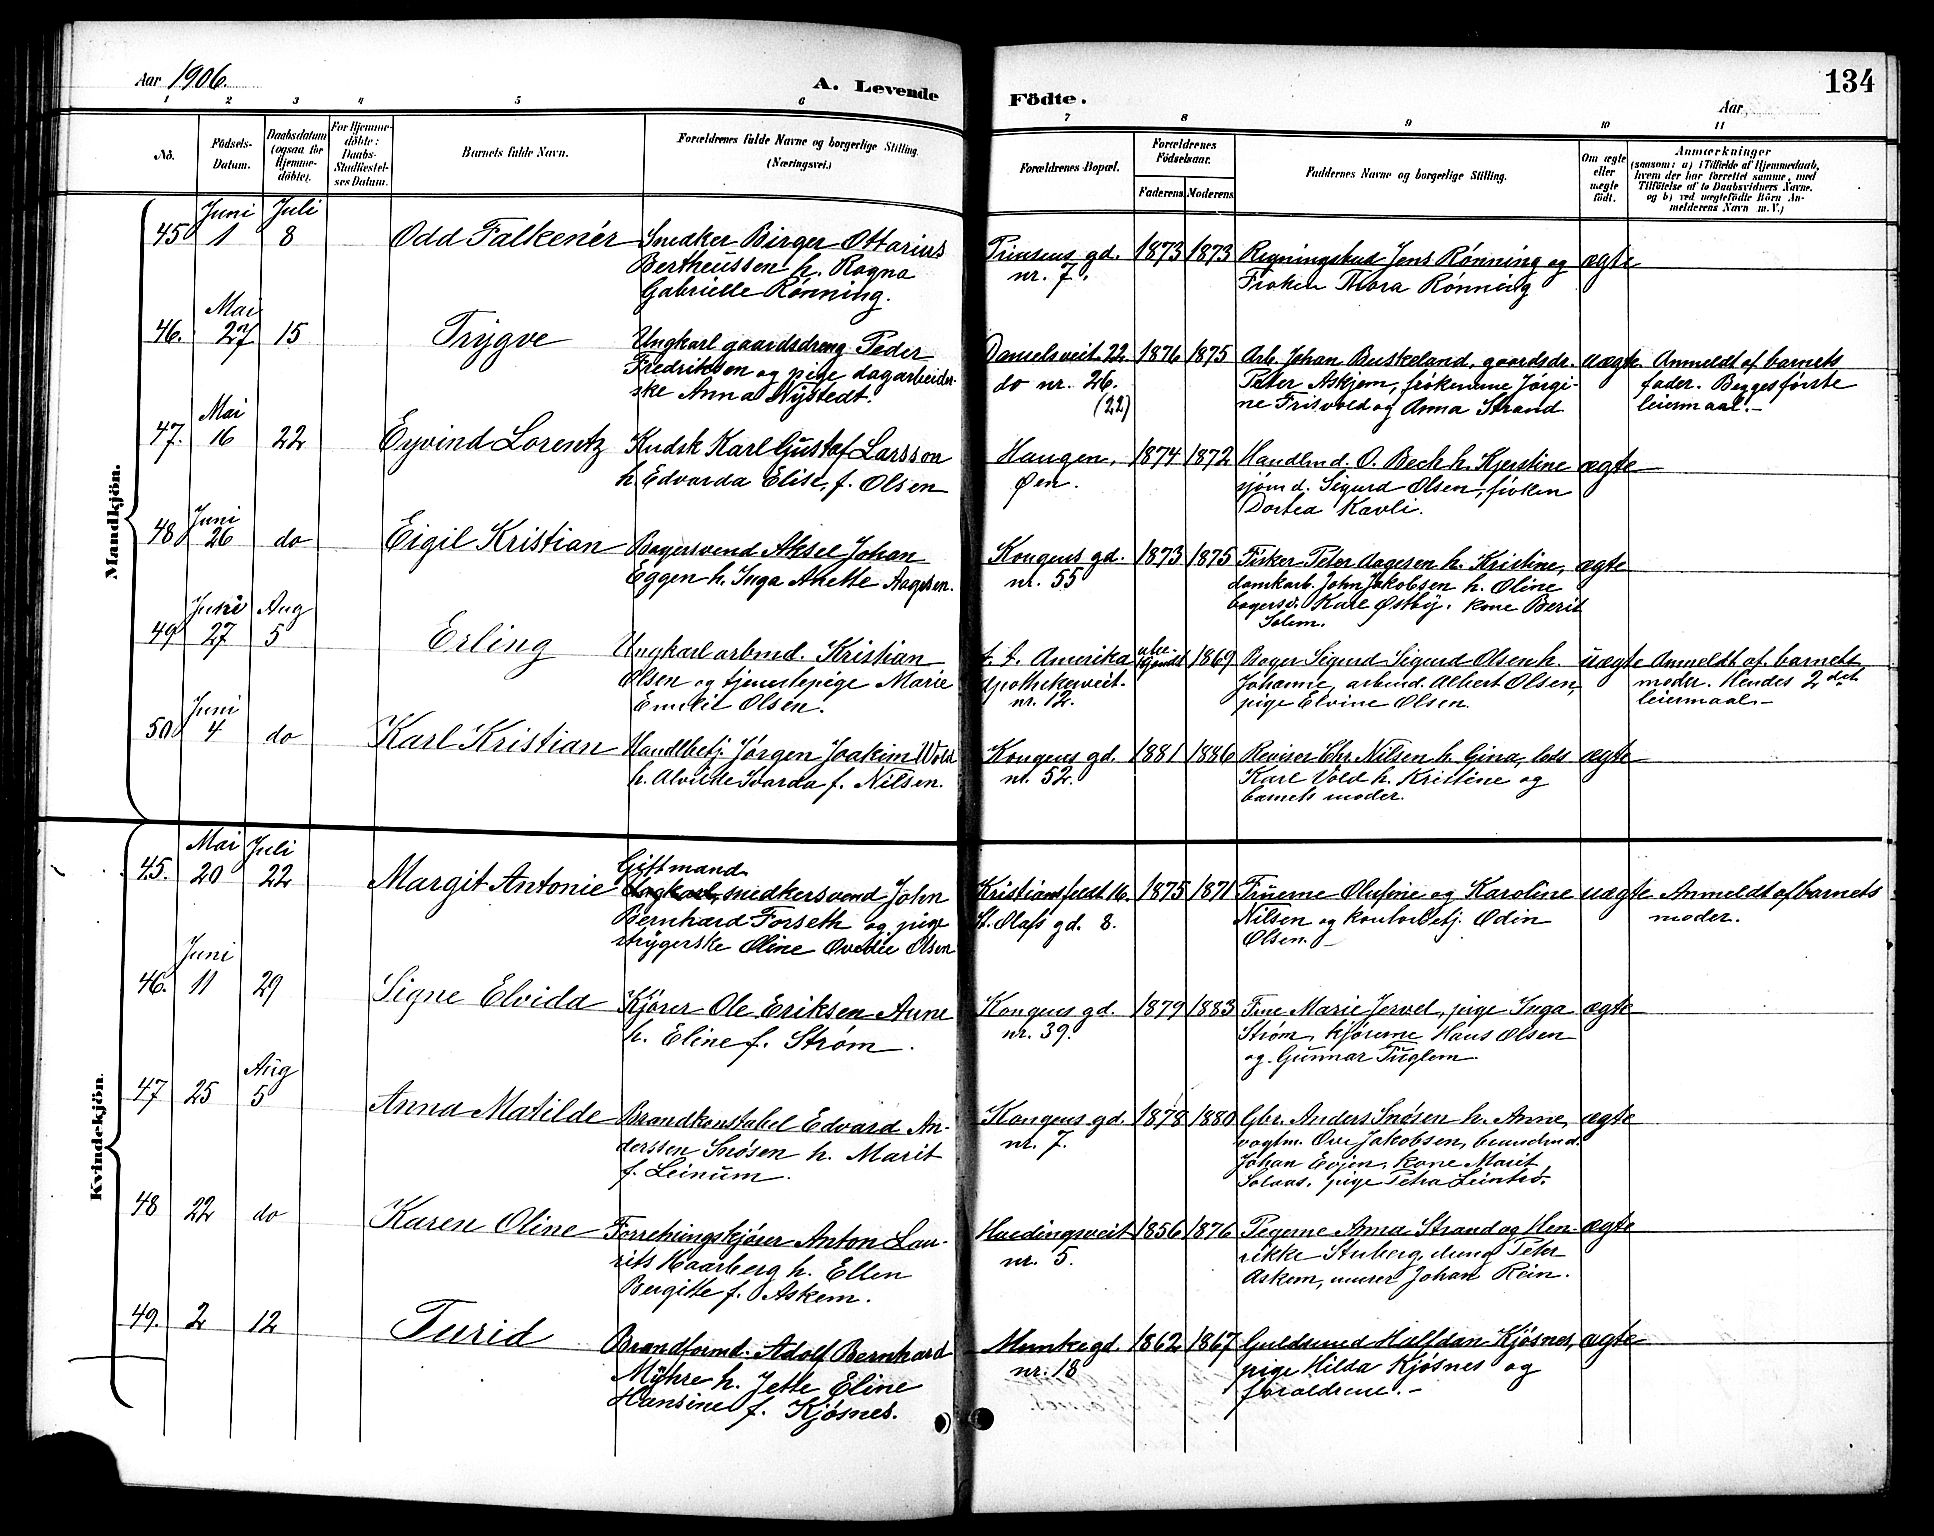 Aar 1906.
A. Levende
Födte.
Aar
134
1 2 3 4 5 6 7 8 9 10 11
No.
Födsels-
Datum.
Daabsdatum
(ogsaa for
Hjemme-
döbte).
For Hjemme-
döbte:
Daabs-
Stadfæstel-
ses Datum.
Barnets fulde Navn.
Forældrenes fulde Navne og borgerlige Stilling.
(Næringsvei.)
Forældrenes Bopæl.
Forældrenes
Födselsaar.
Faderens Moderens
Faddernes Navne og borgerlige Stilling.
Om ægte
eller
uægte
födt.
Anmærkninger
(saasom: a) i Tilfælde af Hjemmedaab,
hvem der har forrettet samme, med
Tilföielse af to Daabsvidners Navne,
og b) ved uægtefödte Börn An-
melderens Navn m. V.)
Mandkjön.
45 Juni 1 Juli 8 Odd Falkenér
Snedker Birger Ottarius
Bertheussen h. Ragna
Gabrielle Rønning.
Prinsens gd.
nr. 7.
1873 1873
Regningsbud Jens Rønning og
Frøken Thora Rønning
ægte
46. Mai 27 15 Trygve
Ungkarl gaardsdreng Peder
Fredriksen og pige dagarbeider-
ske Anna Nystedt.
Danielsveit 22
do nr. 26.
(22)
1876 1875
Arb. Johan Buskeland, gaardsdr.
Peter Askjem, frøknerne Jørgi-
ne Frisvold og Anna Strand
uægte
Anmeldt af barnets
fader. Begges første
leiermaal.-
47. Mai 16 22 Eyvind Lorentz
Kudsk Karl Gustaf Larsson
h. Edvarda Elise, f. Olsen
Haugen,
Øen.
1874 1872
Handlmd. O. Bech h. Kjerstine
sjømd. Sigurd Olsen, frøken
Dortea Kavli.
ægte
48 Juni 26 do Eigil Kristian
Bagersvend Aksel Johan
Eggen h. Inga Anette Aagesen.
Kongens gd.
nr. 55
1873 1875
Fisker Peter Aagesen h. Kristine,
damkarb. John Jakobsen h. Oline
bagersv. Karl Østby, kone Berit
Solem.
ægte
49 Juni 27 Aug 5 Erling
Ungkarl arbmd. Kristian
Olsen og tjenestepige Marie
Emilie Olsen.
t. t. Amerika
Apothekerveit.
nr. 12.
ube-
kjendt
1869
Bager Sigurd Sigurd Olsen h.
Johanne, arbmd. Albert Olsen,
pige Elvine Olsen.
uægte
Anmeldt af barnets
moder. Hendes 2det
leiermaal.-
50 Juni 4 do Karl Kristian
Handlbetj. Jørgen Joakim Wold
h. Alvilde Svarda f. Nilsen.
Kongens gd.
nr. 52.
1881 1886
Revisor Chr. Nilsen h. Gina, lods
Karl Vold h. Kristine og
barnets moder.
ægte
Kvindekjön.
45. Mai 20 Juli 22 Margit Antonie
Gift mand
Ungkarl, snedkersvend John
Bernhard Forseth og pige
strygerske Oline Ovedie Olsen
Kristiansfeldt 16.
St. Olafs gd. 8.
1875 1871
Fruerne Olufine og Karoline
Nilsen og kontorbetj. Odin
Olsen.-
uægte
Anmeldt af barnets
moder.
46. Juni 11 29 Signe Elvida
Kjører Ole Eriksen Aune
h. Eline f. Strøm.
Kongens gd.
nr. 39.
1879 1883
Frue Marie Jervel, pige Inga
Strøm, kjørerne Hans Olsen
og Gunnar Fuglem.
ægte
47 25 Aug 5 Anna Matilde
Brandkonstabel Edvard An-
derssen Snøsen h. Marit
f. Leinum.
Kongens gd.
nr. 7.
1878 1880
Gbr. Anders Snøsen h. Anne,
vagtm. Ove Jakobsen, brandmd.
Johan Evjen, kone Marit
Solaas, pige Petra
ægte
48 22 do Karen Oline
Forretningskjører Anton Lau-
rits Haarberg h. Ellen
Bergitte f. Askem.
Hardingsveit
nr. 5.
1856 1876
Pigerne Anna Strand og Hen-
rikke Stuberg, dreng Peter
Askem, murer Johan Rein.
ægte
49. 2 12 Turid
Brandformd. Adolf Bernhard
Myhre h. Jette Eline
Hansine f. Kjøsnes.
Munkegd.
nr. 18
1862 1867
Guldsmed Halfdan Kjøsnes,
pige Hilda Kjøsnes og
forældrene.-
ægte